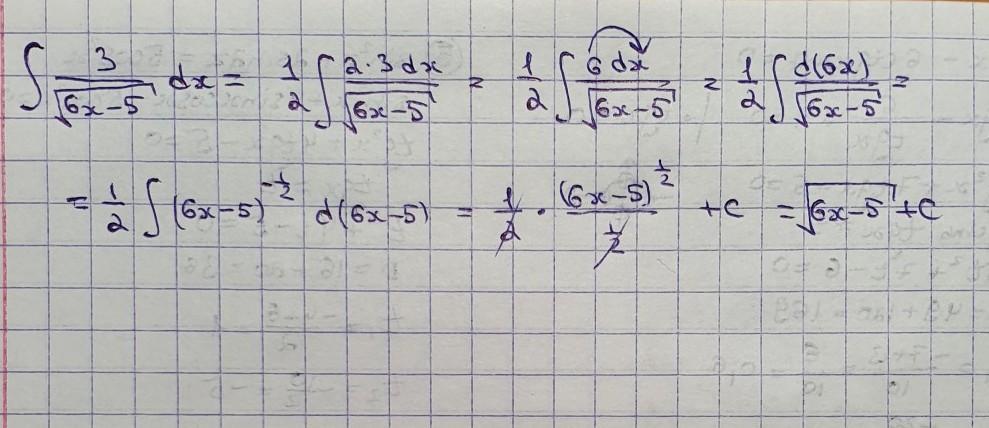 ∫ 3/√(6x-5) dx = 1/2 ∫ 2·3 dx/√(6x-5) = 1/2 ∫ 6 dx/√(6x-5) = 1/2 ∫ d(6x)/√(6x-5) =
= 1/2 ∫ (6x-5)^(-1/2) d(6x-5) = 1/2 · (6x-5)^(1/2)/(1/2) + C = √(6x-5) + C